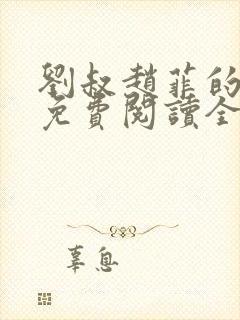 劉叔趙菲的
免費閱讀全
辜息